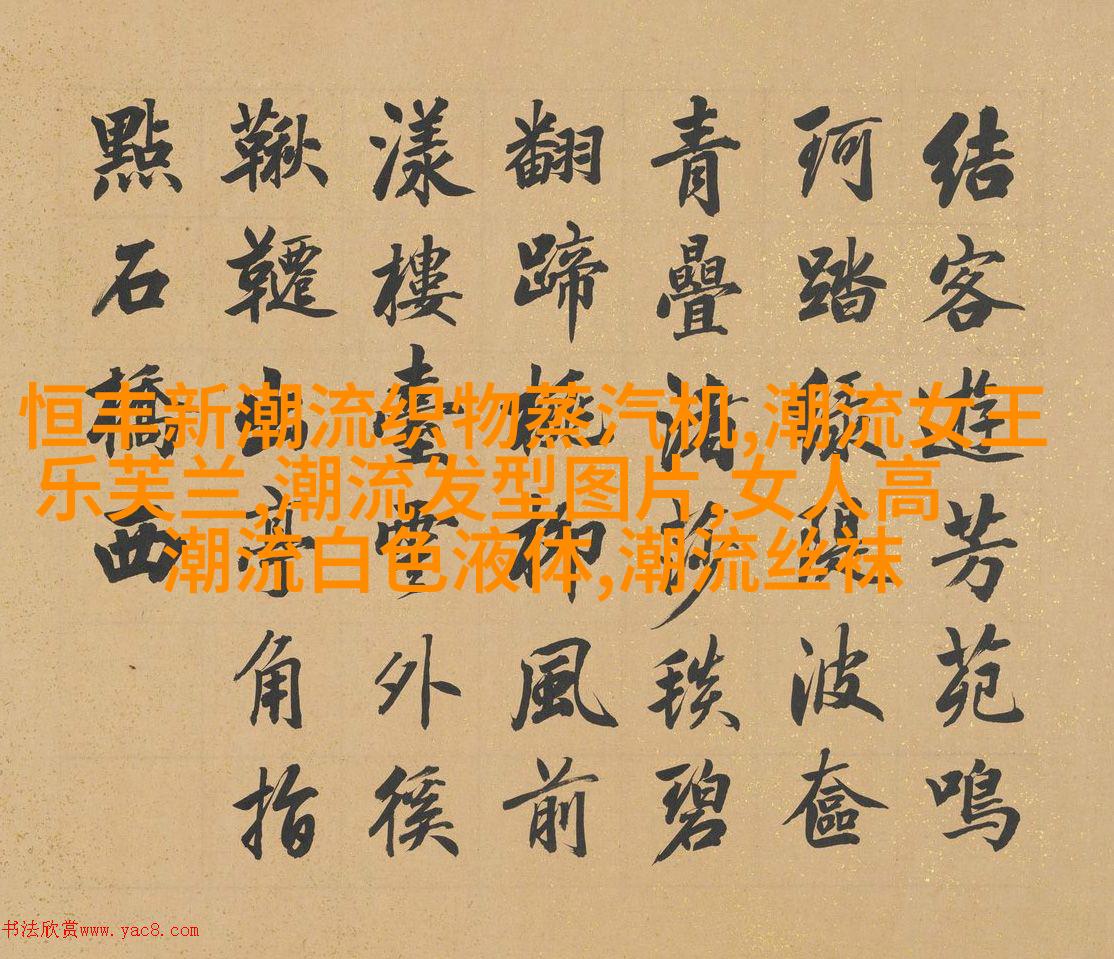 結客遊芳苑鳴
珂踏波奩
青疊沼莎毯碧
翻蹄桃柳風前
漾樓臺雲外徯
鞦韆出亭角指
點石橋西
恒丰新潮流织物蒸汽机,潮流女王
乐芙兰,潮流发型图片,女人高
潮流白色液体,潮流丝袜
书法欣赏www.yac8.com